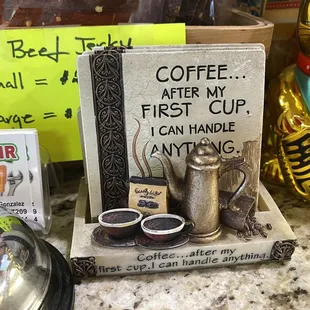 Beef Jerky
mall =
arge =
COFFEE...
AFTER MY
FIRST CUP,
I CAN HANDLE
ANYTHING.
Gonzalez
Coffee...after my
first cup, I can handle anything.